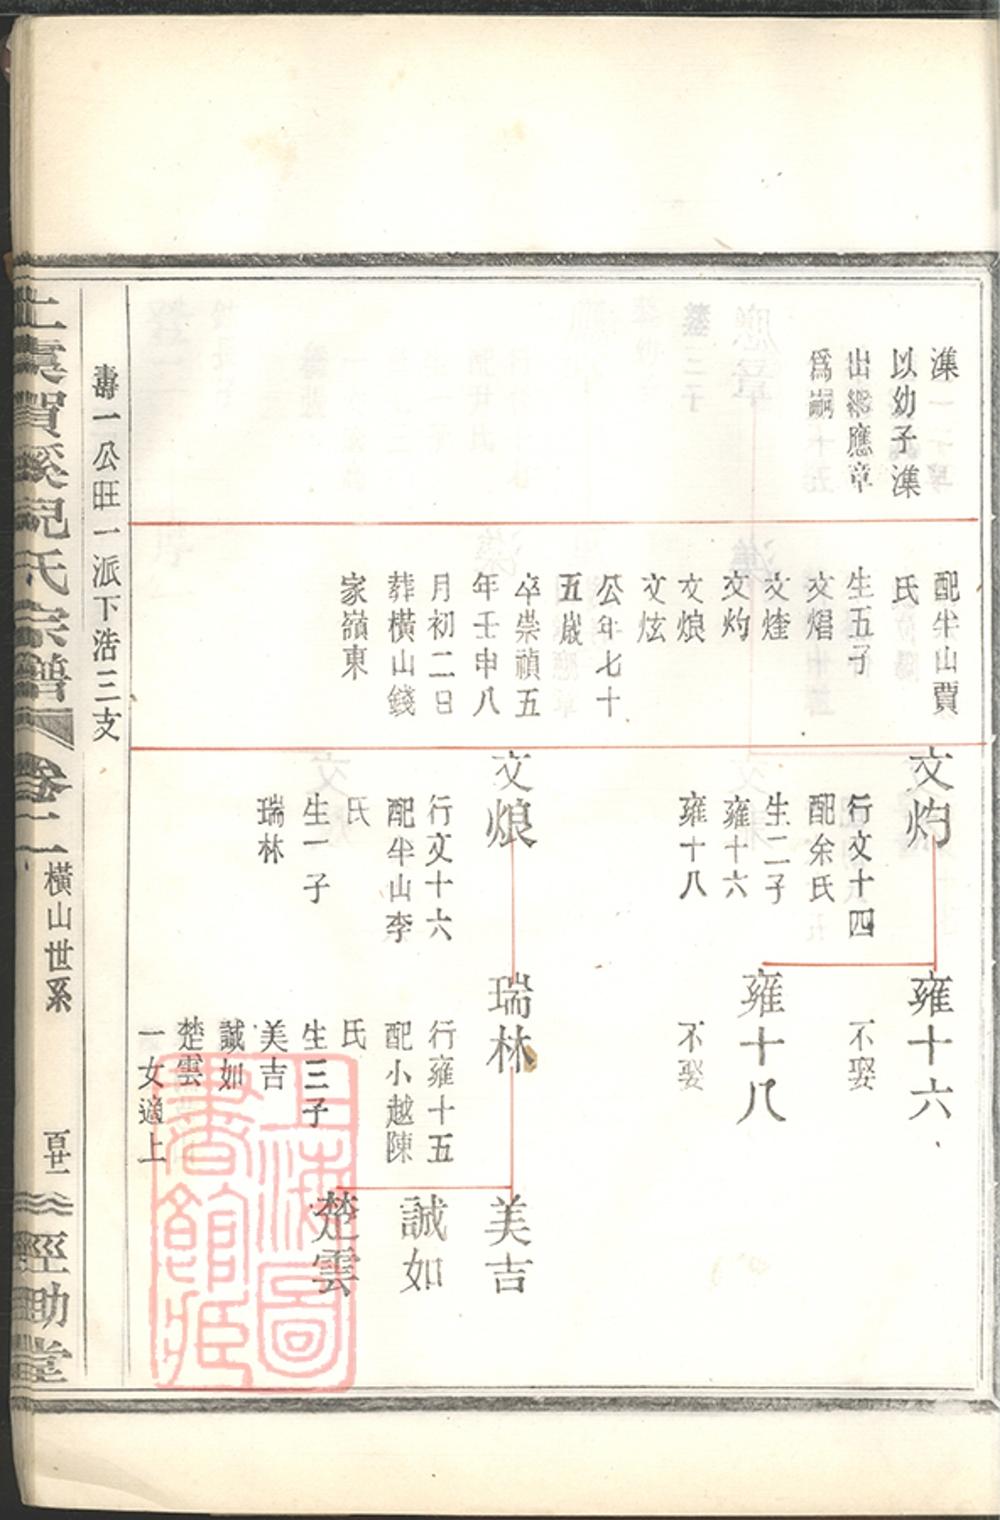 潗
以幼子潗
出繼應章
爲嗣
配半山賈
氏
生五子
文焻
文煃
文灼
文烺
文炫
公年七十
五歲
卒崇禎五
年壬申八
月初二日
葬橫山錢
家嶺東
文灼
行文十四
配余氏
生二子
雍十六
雍十八
文烺
行文十六
配半山李
氏
生一子
瑞林
雍十六
不娶
雍十八
不娶
瑞林
行雍十五
配小越陳
氏
生三子
美吉
誠如
楚雲
一女適上
美吉
誠如
楚雲
壽一公旺一派下浩三支
上虞賀溪倪氏宗譜
卷二
橫山世系
百廿一
經助堂
上海圖
書館藏